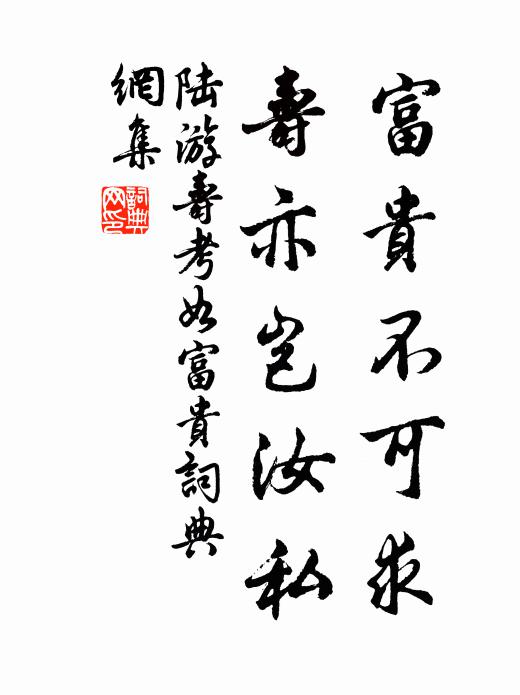 富貴不可求
壽亦豈汝私
陆游壽考如富貴詞典
網集
詞典
网印